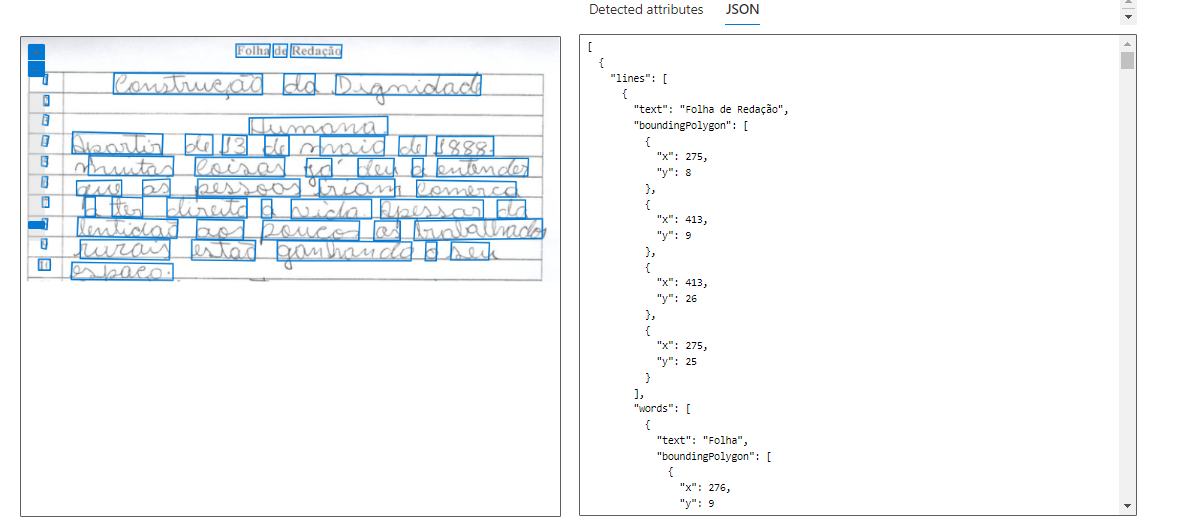 Detected attributes JSON
Folha de Redação
Construção da Dignidade
Humana
Apartir de 13 de maio de 1888
muitas coisas já deu a entender
que as pessoas iriam começa
a ter direito a vida. Apessar da
lentidão aos poucos os
rurais estão ganhando o seu
10 espaço.
[
{
"lines": [
{
"text": "Folha de Redação",
"boundingPolygon": [
{
"x": 275,
"y": 8
},
{
"x": 413,
"y": 9
},
{
"x": 413,
"y": 26
},
{
"x": 275,
"y": 25
}
],
"words": [
{
"text": "Folha",
"boundingPolygon": [
{
"x": 276,
"y": 9